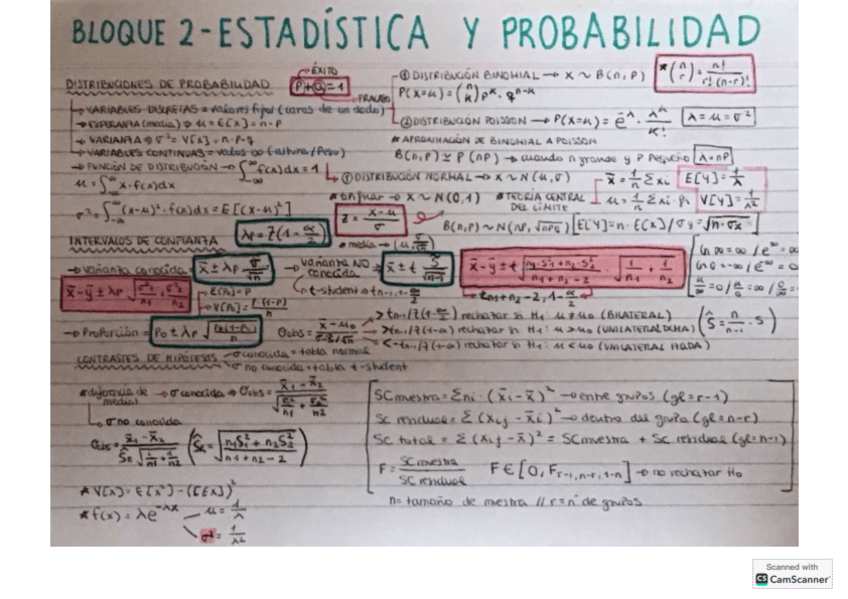 BLOQUE 2 - ESTADÍSTICA Y PROBABILIDAD
DISTRIBUCIONES DE PROBABILIDAD
ÉXITO
P+Q=1
FRACASO
→ VARIABLES DISCRETAS = valores fijos (caras de un dado)
→ ESPERANZA (media) → μ = E[x] = n·p
→ VARIANZA → σ² = V[x] = n·p·q
→ VARIABLES CONTINUAS = valores ∞ (altura/Peso)
→ FUNCIÓN DE DISTRIBUCIÓN → ∫_{-∞}^{∞} f(x)dx = 1
μ = ∫_{-∞}^{∞} x·f(x)dx
σ² = ∫_{-∞}^{∞} (x-μ)²·f(x)dx = E[(x-μ)²]
① DISTRIBUCIÓN BINOMIAL → X ~ B(n,p)
P(X=k) = (n k) p^k · q^{n-k}
* (n r) = n! / r!(n-r)!
② DISTRIBUCIÓN POISSON → P(X=k) = e^{-λ} · λ^k / k!
λ = μ = σ²
* APROXIMACIÓN DE BINOMIAL A POISSON
B(n,p) ≃ P(np) → cuando n grande y p pequeño
λ = np
① DISTRIBUCIÓN NORMAL → X ~ N(μ,σ)
* tipificar → X ~ N(0,1)
Z = x-μ / σ
* TEORÍA CENTRAL DEL LÍMITE
x̄ = 1/n Σxi
μ = 1/n Σxi · pi
E[Y] = 1/λ
V[Y] = 1/λ²
B(n,p) ~ N(np, √npq)
[E[Y] = n·E[x] / σy = √n·σx]
INTERVALOS DE CONFIANZA
λp = Z(1 - α/2)
* media → (μ, σ/√n)
→ varianza conocida =
x̄ ± λp σ/√n
→ varianza NO conocida
t-student → t_{n-1, 1-α/2}
x̄ ± t Ŝ/√n-1
x̄-ȳ ± t √(n1·S1²+n2·S2² / n1+n2-2) · √(1/n1 + 1/n2)
t_{n1+n2-2, 1-α/2}
x̄-ȳ ± λp √(σ1²/n1 + σ2²/n2)
E[P0] = P
V[P0] = P·(1-P)/n
→ Proporción =
P0 ± λp √(P0(1-P0)/n)
θobs = x̄-μ0 / σ·Ŝ/√n
rechazar si H1: μ ≠ μ0 (BILATERAL)
rechazar si H1: μ > μ0 (UNILATERAL DCHA)
rechazar si H1: μ < μ0 (UNILATERAL IZQDA)
(Ŝ = n/n-1 · S)
CONTRASTES DE HIPÓTESIS
σ conocida = tabla normal
σ no conocida = tabla t-student
* diferencia de medias
→ σ conocida → θobs = x̄1-x̄2 / √(σ1²/n1 + σ2²/n2)
σ no conocida
θobs = x̄1-x̄2 / ŜR √(1/n1 + 1/n2)
(ŜR = √(n1S1²+n2S2² / n1+n2-2))
SC muestra = Σni · (x̄i - x̄)² → entre grupos (gl = r-1)
SC residual = Σ(xij - x̄i)² → dentro del grupo (gl = n-r)
SC total = Σ(xij - x̄)² = SC muestra + SC residual (gl = n-1)
F = SC muestra / SC residual
F ∈ [0, F_{r-1, n-r, 1-α}] → no rechazar H0
n = tamaño de muestra // r = nº de grupos
* V[x] = E[x²] - (E[x])²
* f(x) = λe^{-λx}
μ = 1/λ
σ² = 1/λ²
Scanned with
CS CamScanner